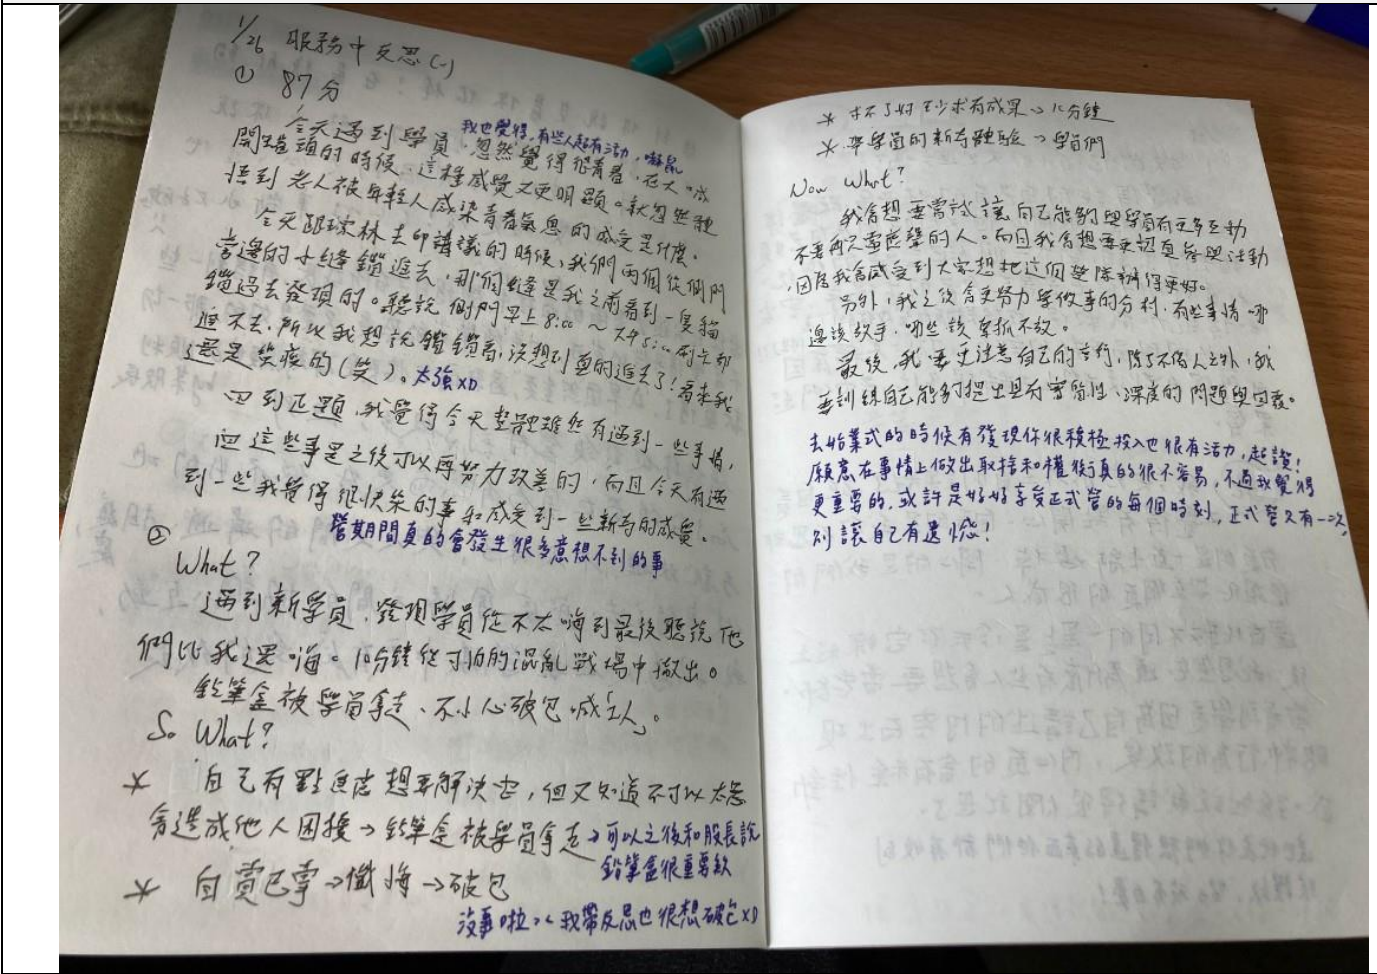 1/26 服務中反思(一)
① 87分
我也覺得,有些人超有活力,嚇鼠
今天遇到學員,忽然覺得很青春,在大一咸
開罐頭的時候,這種感覺又更明顯。就忽然體
悟到老人被年輕人感染青春氣息的感受是什麼。
今天跟 林去印講議的時候,我們兩個從側門
旁邊的小縫鑽進去,那個縫是我之前看到一隻貓
鑽過去發現的。聽說側門早上8:00~下午5:00刷卡都
進不去,所以我想說鑽鑽看,沒想到真的進去了!看來我
還是蠻瘦的(笑)。太強XD
回到正題,我覺得今天整體雖然有遇到一些事情,
但這些事是之後可以再努力改善的,而且今天有遇
到一些我覺得很快樂的事和感受到一些新奇的感覺。
營期間真的會發生很多意想不到的事
②
What?
遇到新學員,發現學員從不太嗨到最後聽說他
們比我還嗨。10分鐘從可怕的混亂戰場中撤出。
鉛筆盒被學員拿走、不小心破包喊「 人」。
So What?
* 自己有點焦慮想要解決它,但又知道不可以太急
會造成他人困擾→鉛筆盒被學員拿走→可以之後和股長說
鉛筆盒很重要欸
* 自責己掌→懺悔→破包
沒事啦>< 我帶反思也很想破包XD
* 求 有成果→10分鐘
* 帶學員的新奇體驗→學員們
Now What?
我會想要嘗試讓自己能夠與學員有更多互動
不要再只當應聲的人。而且我會想要更認真參與活動
,因為我會感受到大家想把這個營隊辦得更好。
另外,我之後會更努力學做事的分利,有些事情哪
邊該放手,哪些該緊抓不放。
最後,我要更注意自己的言行,除了不傷人之外,我
要訓練自己能夠提出具有實質性、深度的問題與回覆。
去始業式的時候有發現你很積極投入也很有活力,超讚!
願意在事情上做出取捨和權衡真的很不容易,不過我覺得
更重要的,或許是好好享受正式營的每個時刻,正式營只有一次,
別讓自己有遺憾!